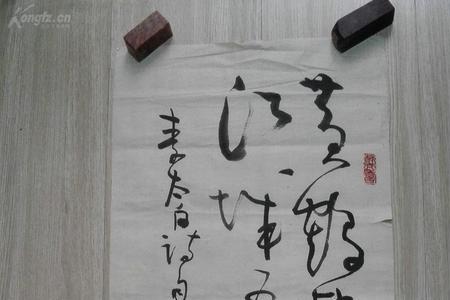 Kongfz.cn
黄鹤
江城五
李太白诗